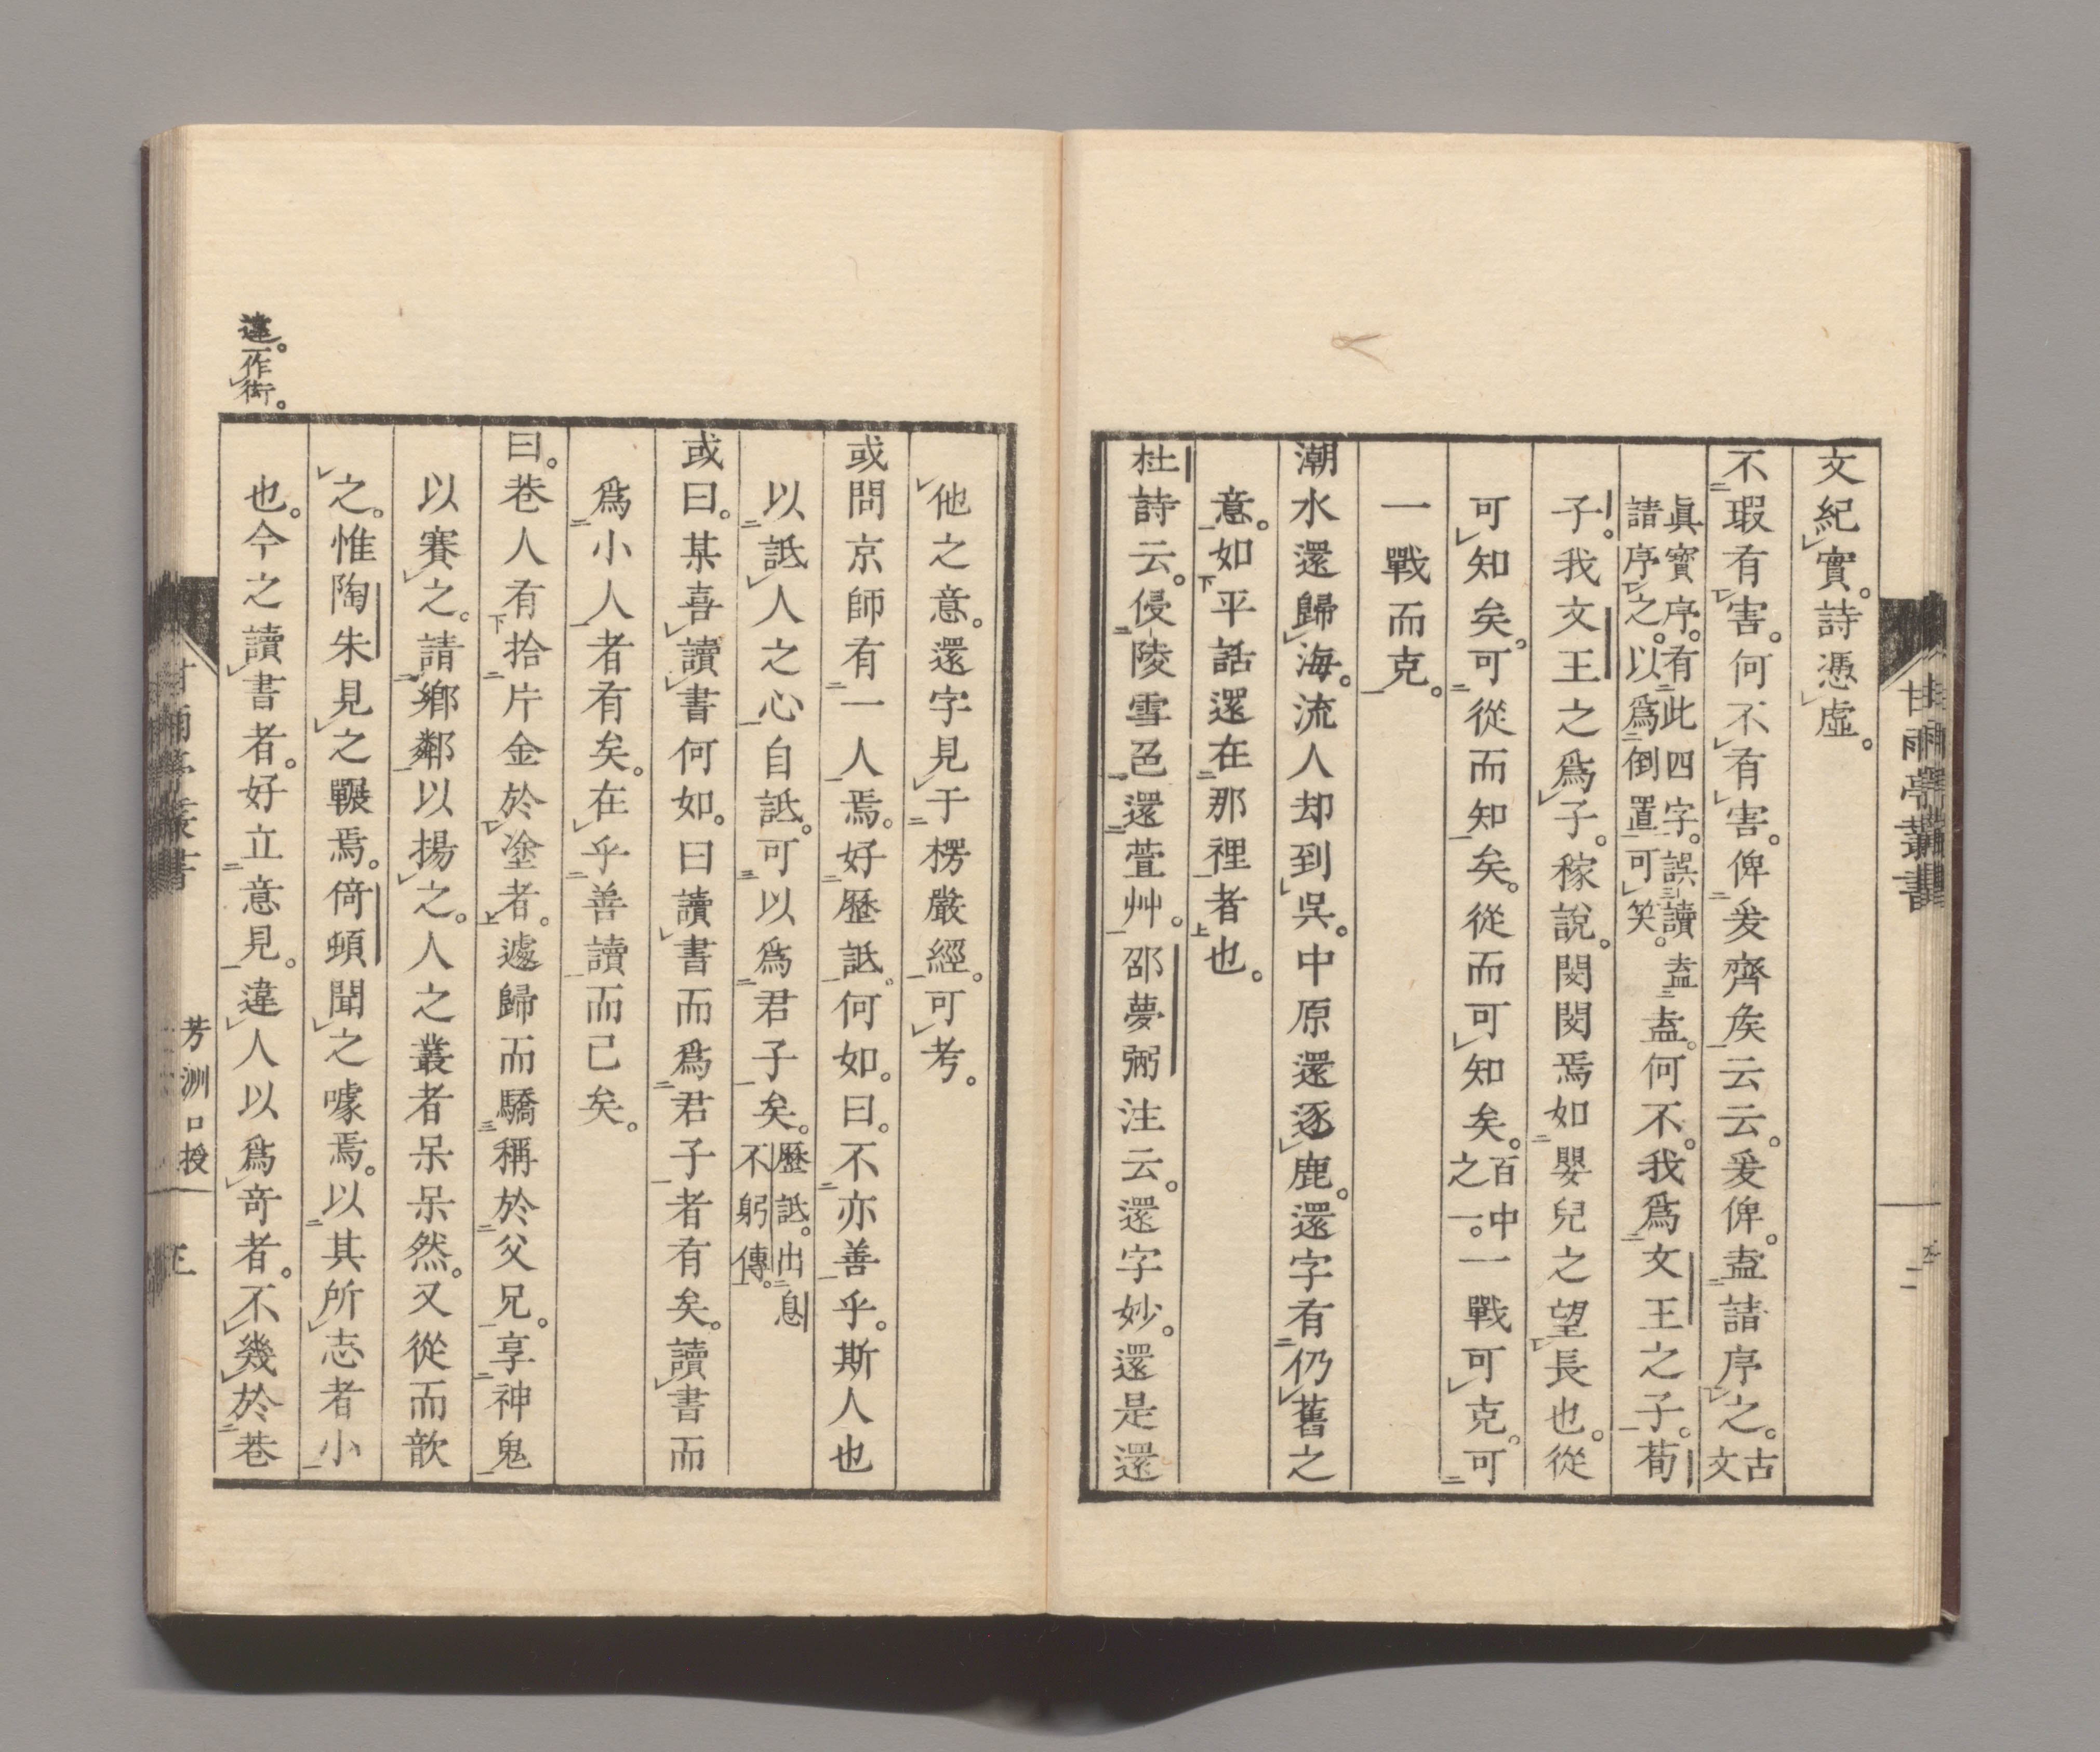 文紀實。詩憑虛。
不瑕有害。何不有害。俾爰齊矦云云。爰俾。盍請序之。古文
眞寳序。有此四字。誤讀盍
請序之。以爲倒置可笑。
盍。何不。我爲文王之子。荀
子。我文王之爲子。稼說。閔閔焉如嬰兒之望長也。從
可知矣。可從而知矣。從而可知矣。百中之一。一戰可克。可
一戰而克。
潮水還歸海。流人却到吳。中原還逐鹿。還字有仍舊之
意。如平話還在那裡者也。
杜詩云。侵陵雪色還萱艸。邵夢弼注云。還字妙。還是還
甘雨亭叢書
二
他之意。還字見于楞嚴經。可考。
或問京師有一人焉。好歷詆。何如。曰。不亦善乎。斯人也
以詆人之心自詆。可以爲君子矣。歷詆。出息
不躬傳。
或曰。某喜讀書何如。曰讀書而爲君子者有矣。讀書而
爲小人者有矣。在乎善讀而已矣。
曰。巷人有拾片金於塗者。遽歸而驕稱於父兄。享神鬼
以賽之。請鄉鄰以揚之。人之叢者呆呆然。又從而歆
之。惟陶朱見之囅焉。倚頓聞之噱焉。以其所志者小
也。今之讀書者。好立意見。違人以爲奇者。不幾於巷
違。一作衒。
芳洲口授